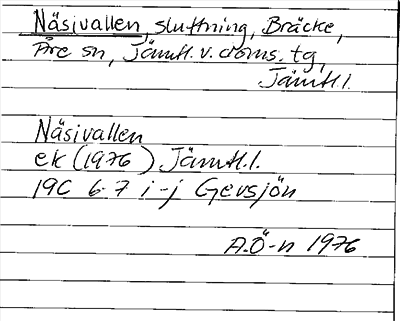 Näsivallen, sluttning, Bräcke,
Åre sn, Jämtl. v. doms. tg,
Jämtl.l.
Näsivallen
ek (1976) Jämtl.l.
19C 6-7 i-j Gevsjön
A.Ö-n 1976